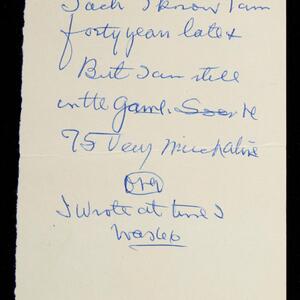 Jack I know I am
forty years late &
But I am still
in the game.
75 Very Much alive
over
I wrote at time I
was 60